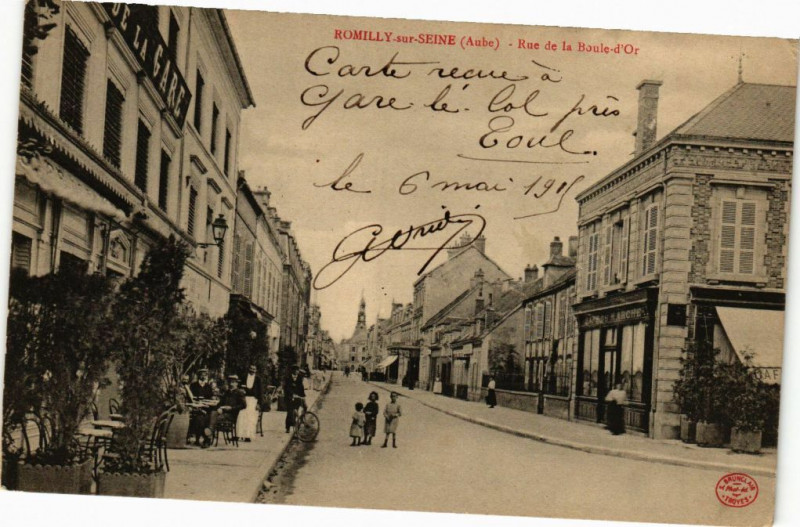 ROMILLY-sur-SEINE (Aube) - Rue de la Boule-d'Or
Carte reçue à
Gare-le-Col près
Toul.
le 6 mai 1915
DE LA GARE
MARCHÉ
CAF
TROYES